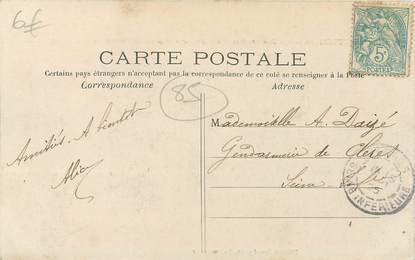 6f
CARTE POSTALE
Certains pays étrangers n'acceptant pas la correspondance de ce coté se renseigner à la Poste
Correspondance
Adresse
85
Amitiés. A bientôt
Alice
Mademoiselle A. Daizé
Gendarmerie de Clères
Seine
5c
POSTES
INFERIEURE